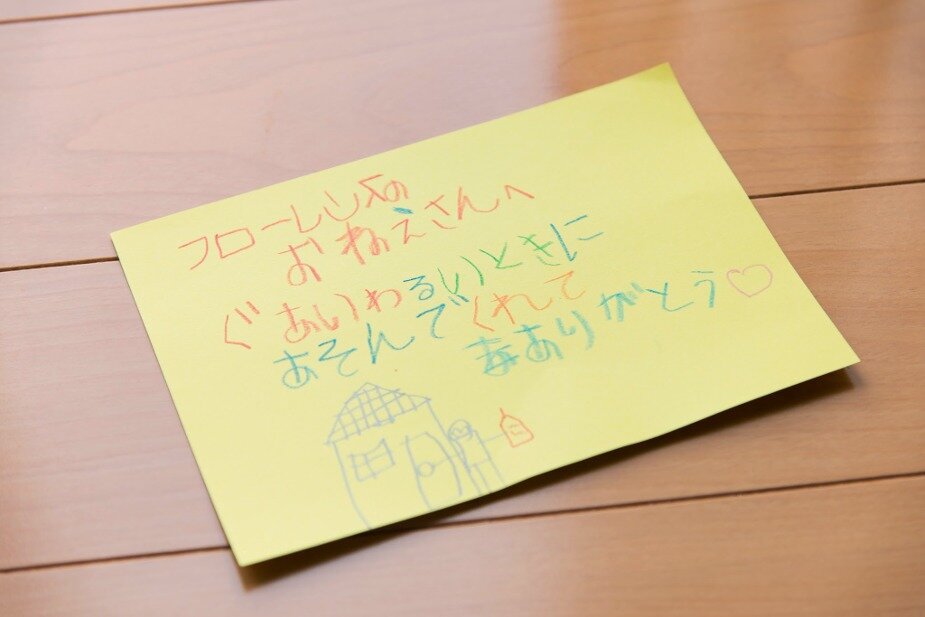 フローレンスの
おねえさんへ
ぐあいわるいときに
あそんでくれて
ありがとう♡